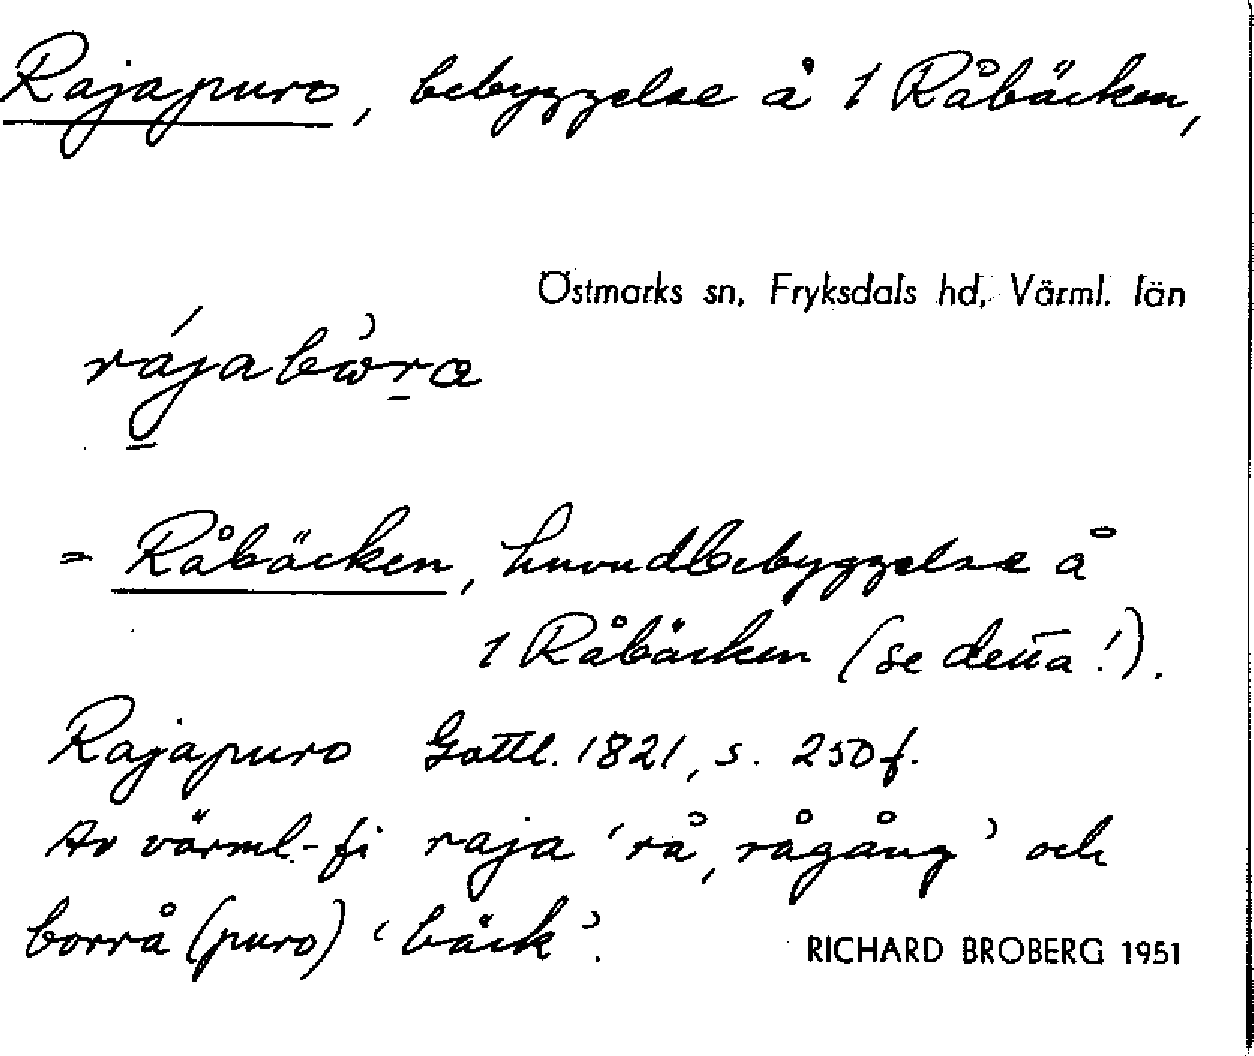 Rajapuro, bebyggelse å 1 Råbäcken,
Östmarks sn, Fryksdals hd, Värml. län
rájabẁra
= Råbäcken, huvudbebyggelse å
1 Råbäcken (se detta!).
Rajapuro Gottl. 1821, s. 250 f.
Av värml.-fi raja 'rå, rågång' och
borrå (puro) 'bäck'.
RICHARD BROBERG 1951